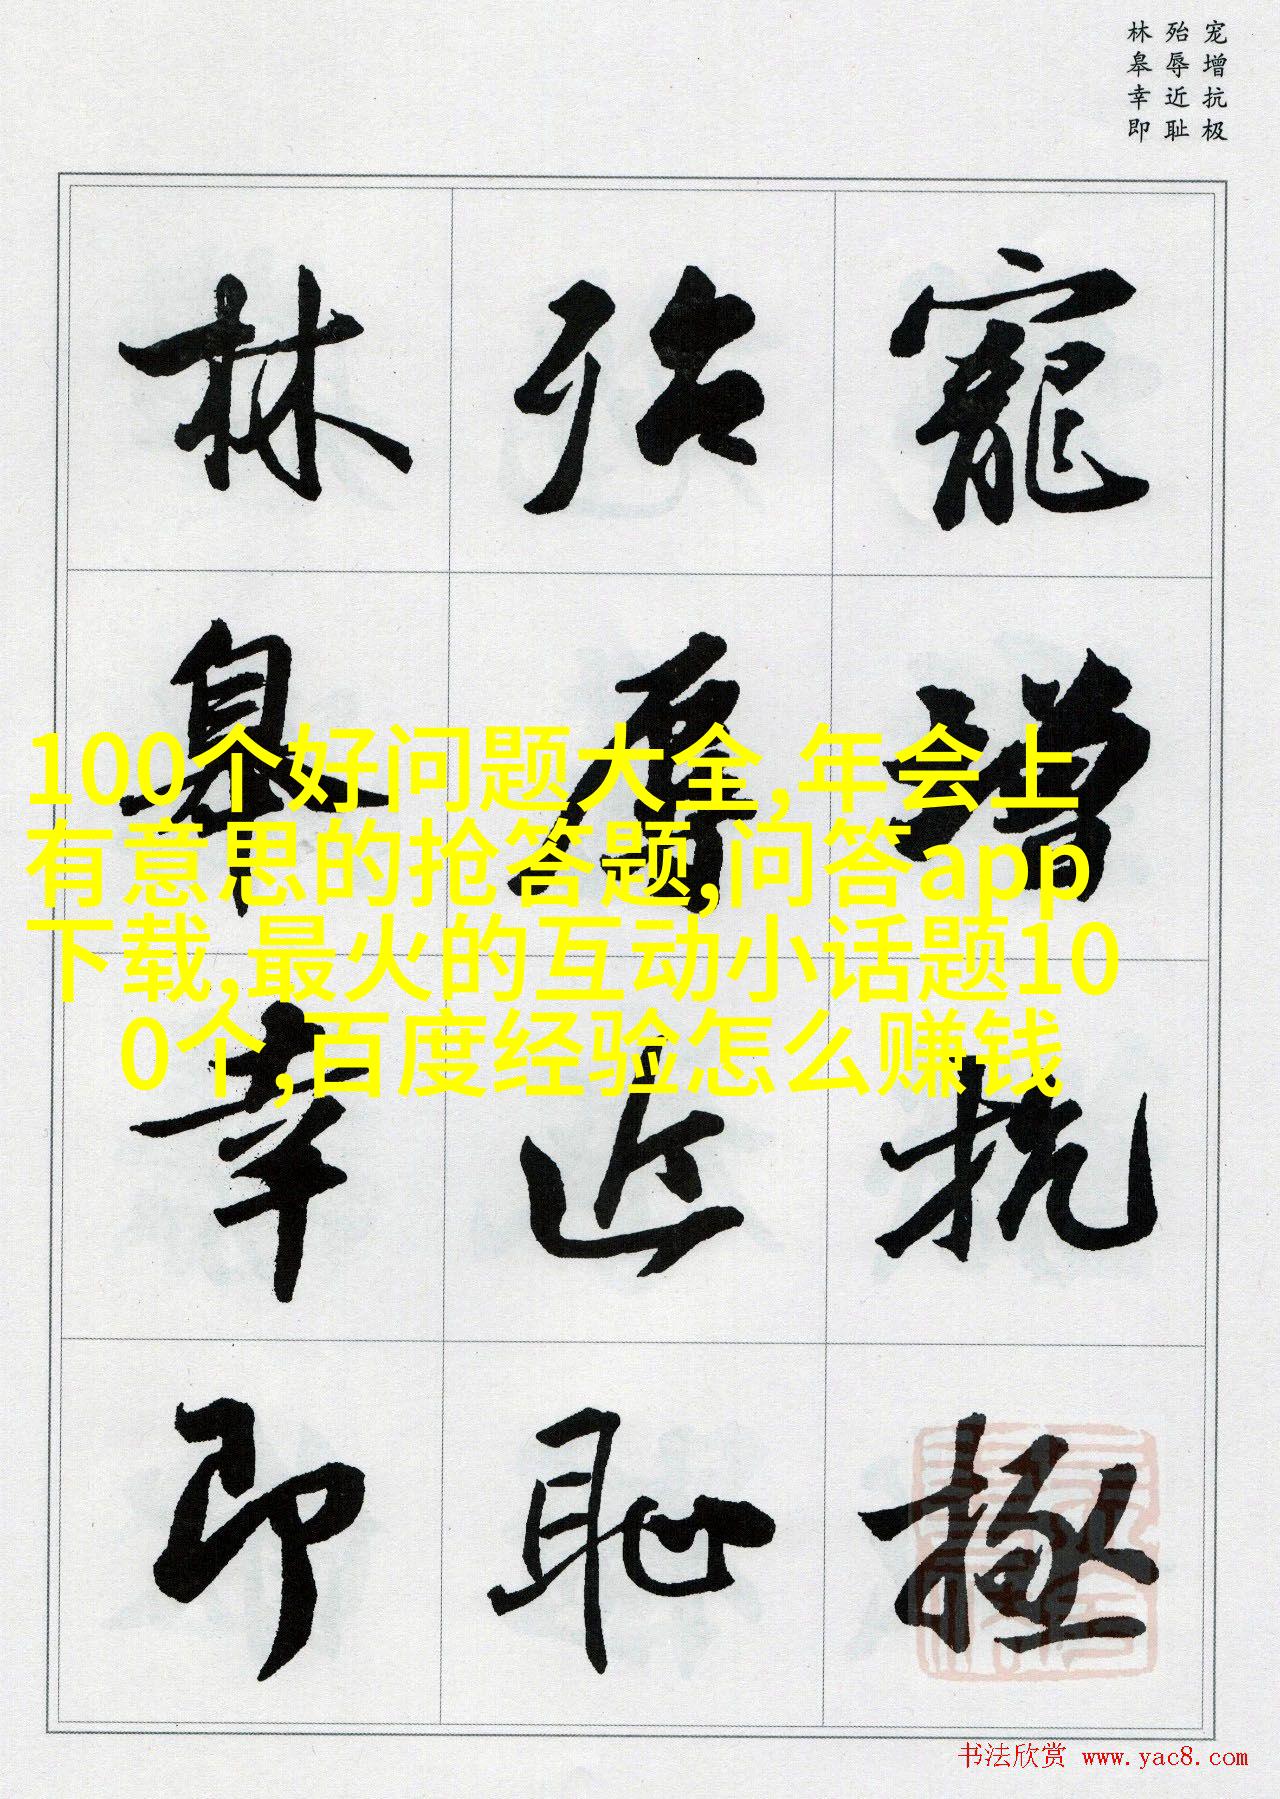 宠增抗极
殆辱近耻
林皋幸即
寵增抗極
殆辱近恥
林皋幸即
100个好问题大全,年会上
有意思的抢答题,问答app
下载,最火的互动小话题10
0个,百度经验怎么赚钱
书法欣赏 www.yac8.com